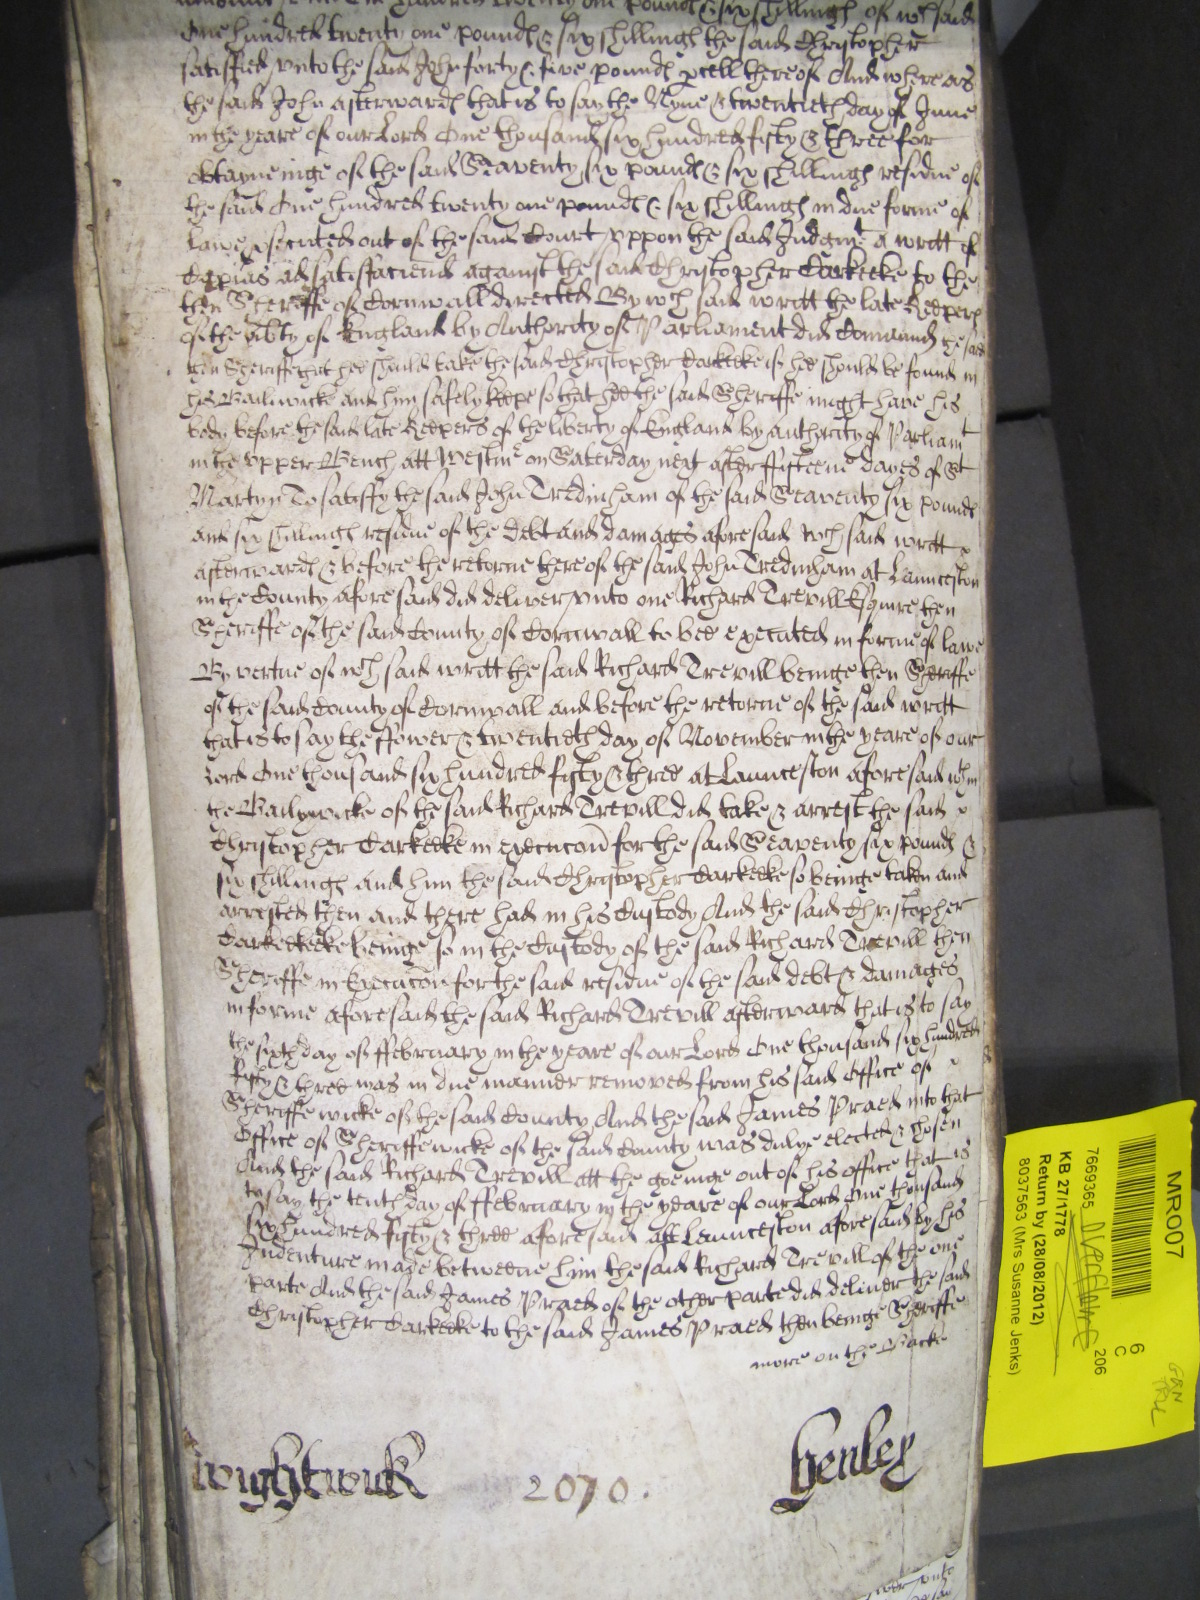 One hundred twenty one pounds & six shillings the said Christopher
satisfied unto the said John forty & five pounds pcell thereof And whereas
the said John afterwards that is to say the Nyne & twentieth day of June
in the yeare of our Lord One thousand six hundred fifty & three for
obtayneinge of the said Seaventy six pounds & six shillings residue of
the said One hundred twenty one pounds & six shillings in due forme of
lawe psecuted out of the said Court uppon the said Judgmt a writt of
Capias ad satisfaciend against the said Christopher Carkeeke to the
then Sheriffe of Cornwall directed By wch said writt the late Keepers
of the libty of England by Authority of Parliament did Comaund the said
then Sheriffe that hee should take the said Christopher Carkeeke if hee should be found in
his Bailiwicke and him safely keepe so that hee the said Sheriffe might have his
body before the said late Keepers of the liberty of England by authority of Parliamt
in the upper Bench att Westmr on Saterday next after fifteene dayes of St
Martyn To satisfy the said John Tredinham of the said Seaventy six pounds
and six shillings residue of the debt and damages aforesaid wch said writt
afterwards & before the retorne thereof the said John Tredinham at Launceston
in the County aforesaid did deliver unto one Richard Trevill Esquire then
Sheriffe of the said County of Cornwall to bee executed in forme of lawe
By vertue of wch said writt the said Richard Trevill beinge then Sheriffe
of the said County of Cornwall and before the retorne of the said writt
that is to say the ffower & twentieth day of November in the yeare of our
Lord One thousand six hundred fifty & three at Launceston aforesaid wthin
the Bailywicke of the said Richard Trevill did take & arrest the said
Christopher Carkeeke in execucon for the said Seaventy six pounds &
six shillings and him the said Christopher Carkeeke so beinge taken and
arrested then and there had in his Custody And the said Christopher
Carkeeke beinge so in the Custody of the said Richard Trevill then
Sheriffe in Execucon for the said residue of the said debt & damages
in forme aforesaid the said Richard Trevill afterward that is to say
the sixth day of ffebruary in the yeare of our Lord One thousand six hundred
fifty & three was in due manner removed from his said Office of
Sheriffewicke of the said County And the said James Praed into that
Office of Sheriffewicke of the said County was dulye elected & chosen
And the said Richard Trevill att the goeinge out of his office that is
to say the tenth day of ffebruary in the yeare of our Lord One thousand
six hundred fifty & three aforesaid att Launceston aforesaid by his
Indenture made betweene him the said Richard Trevill of the one
parte And the said James Praed of the other parte did deliver the said
Christopher Carkeeke to the said James Praed then beinge Sheriffe
more on the Backe
wightwick 2070. Henley
MR007
7669365
KB 27/1778
Return by (28/08/2012)
8037563 (Mrs Susanne Jenks)
6
C
206